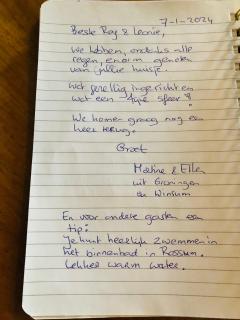 7-1-2024
Beste Roy & Leonie,
We hebben, ondanks alle
regen, enorm genoten
van jullie huisje.
Wat gezellig ingericht en
wat een fijne sfeer!
We komen graag nog een
keer terug.
Groet
Martine & Ellen
uit Groningen
en Winsum
En voor andere gasten een
tip:
Je kunt heerlijk zwemmen in
het binnenbad in Rossum.
Lekker warm water.